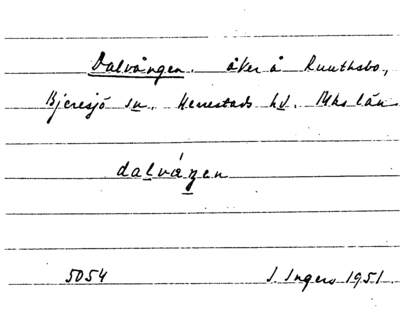 Dalvången. åker å Ruuthsbo,
Bjeresjö sn. Herrestads hd. Mhs län
dalváŋen
5054 I. Ingers 1951.